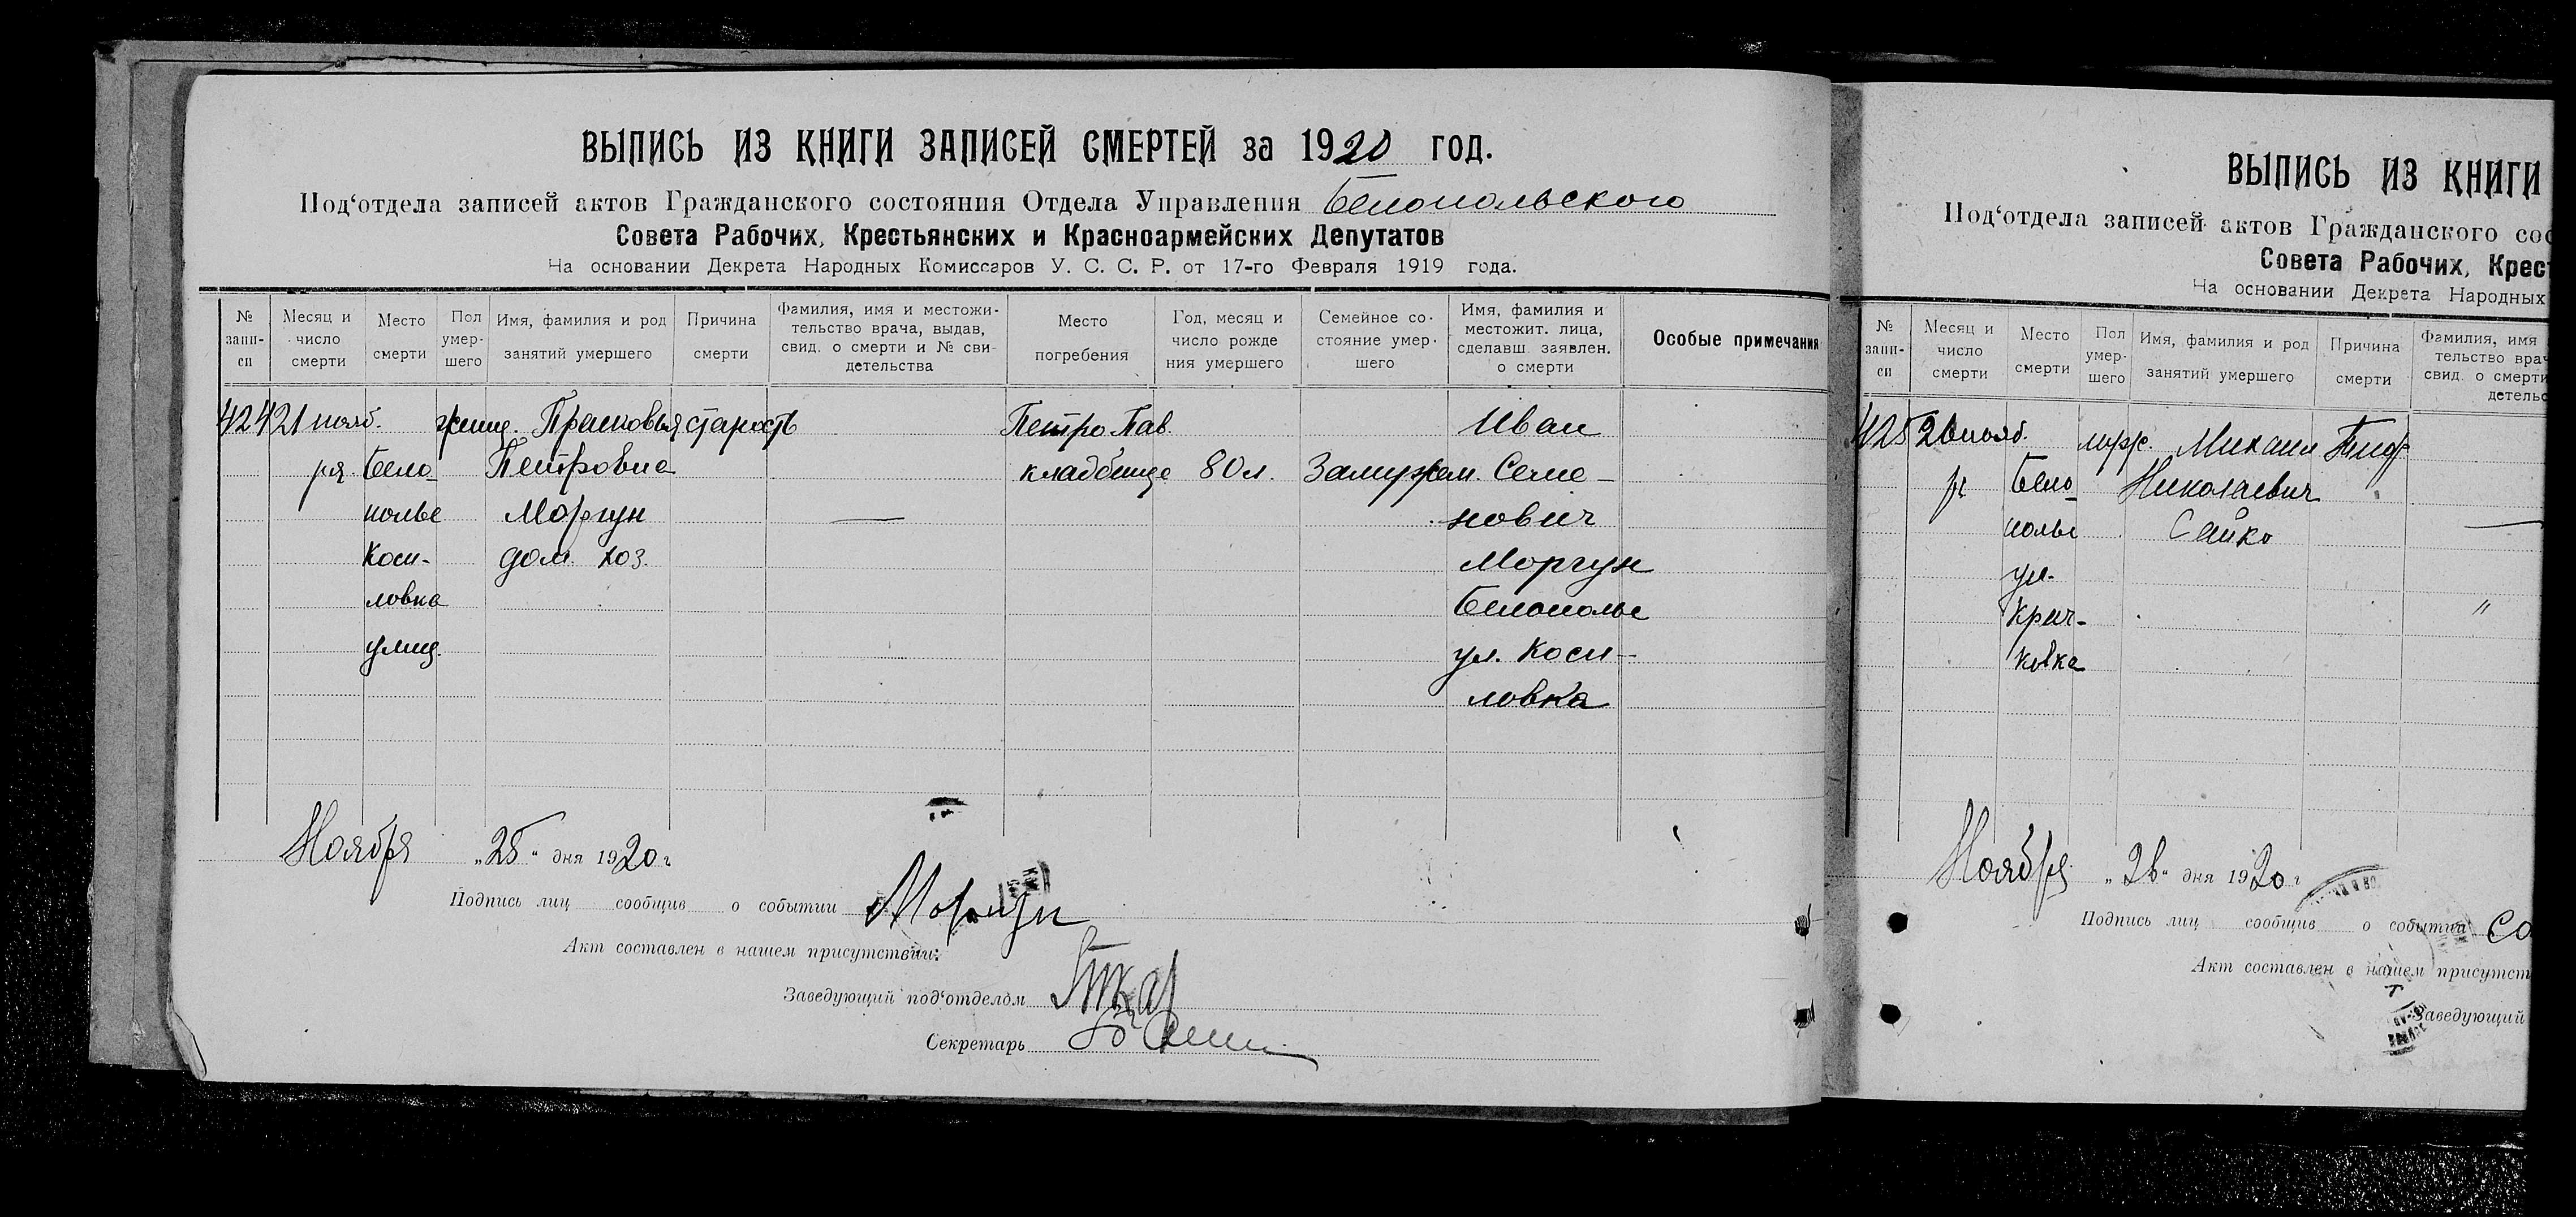 ВЫПИСЬ ИЗ КНИГИ ЗАПИСЕЙ СМЕРТЕЙ за 1920 год.
Под‘отдела записей актов Гражданского состояния Отдела Управления Белопольского
Совета Рабочих, Крестьянских и Красноармейских Депутатов
На основании Декрета Народных Комиссаров У. С. С. Р. от 17-го Февраля 1919 года.
№ запи-си
Месяц и число смерти
Место смерти
Пол умер-шего
Имя, фамилия и род занятий умершего
Причина смерти
Фамилия, имя и местожи-тельство врача, выдав, свид. о смерти и № сви-детельства
Место погребения
Год, месяц и число рожде ния умершего
Семейное со-стояние умер-шего
Имя, фамилия и местожит. лица, сделавш. заявлен. о смерти
Особые примечания
424 21 нояб. женщ. Прасковья старость Петро Пав. Иван
ря. Бело- Петровна кладбище 80 л. Замужем. Семе-
полье Моргун — нович
Коси- дом. хоз. Моргун
ловка Белополье
улиц. ул. Коси-
ловка
Ноября „25“ дня 1920 г
Подпись лиц сообщив о событии Моргун
Акт составлен в нашем присутствии:
Заведующий под‘отделом
Секретарь
ВЫПИСЬ ИЗ КНИГИ
Под‘отдела записей актов Гражданского сос
Совета Рабочих, Крест
На основании Декрета Народных
№ запи-си
Месяц и число смерти
Место смерти
Пол умер-шего
Имя, фамилия и род занятий умершего
Причина смерти
Фамилия, имя тельство врач свид. о смерти детельс
425 26 нояб. муж. Михаил Тиф
ря Бело- Николаевич
полье Сайко —
ул.
Крич- "
ковка
Ноября „26“ дня 1920 г
Подпись лиц сообщив о событии Са
Акт составлен в нашем присутст
Заведующий